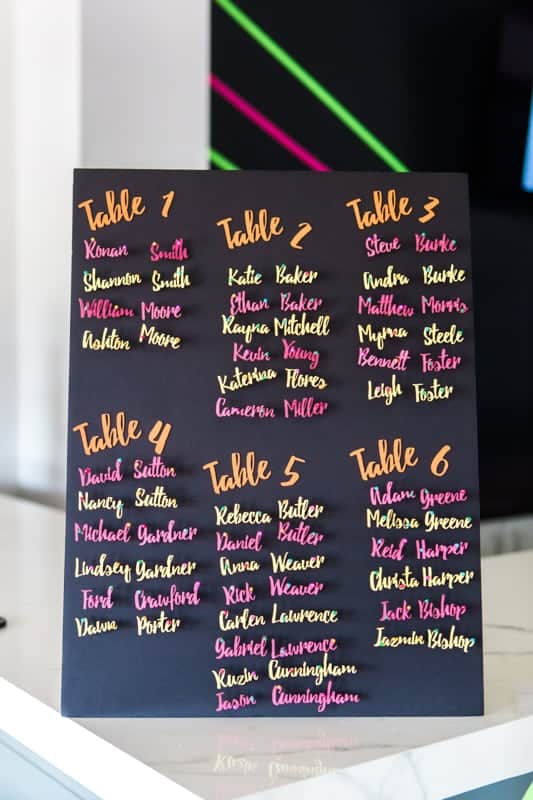 Table 1
Ronan Smith
Shannon Smith
William Moore
Ashton Moore
Table 2
Katie Baker
Ethan Baker
Rayna Mitchell
Kevin Young
Katerina Flores
Cameron Miller
Table 3
Steve Burke
Andra Burke
Matthew Morris
Myrna Steele
Bennett Foster
Leigh Foster
Table 4
David Sutton
Nancy Sutton
Michael Gardner
Lindsey Gardner
Ford Crawford
Dawn Porter
Table 5
Rebecca Butler
Daniel Butler
Anna Weaver
Rick Weaver
Carlen Lawrence
Gabriel Lawrence
Ruzin Cunningham
Jason Cunningham
Table 6
Adam Greene
Melissa Greene
Reid Harper
Christa Harper
Jack Bishop
Jazmin Bishop